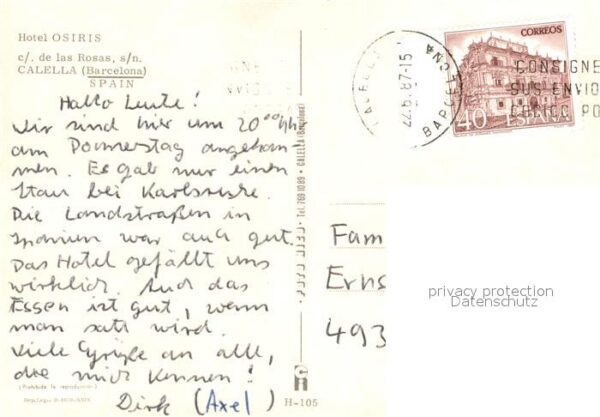 Hotel OSIRIS
c/. de las Rosas, s/n.
CALELLA (Barcelona)
SPAIN
Hallo Leute!
Wir sind hier um 20⁰⁰ Uhr
am Donnerstag angekom-
men. Es gab nur einen
Stau bei Karlsruhe.
Die Landstraßen in
Spanien war auch gut.
Das Hotel gefällt uns
wirklich. Auch das
Essen ist gut, wenn
man satt wird.
Viele Grüße an alle,
die mich kennen!
Dirk (Axel)
(Prohibida la reproducción)
H-105
Tel. 769 10 89 • CALELLA (Barcelona)
CORREOS
40 ESPAÑA
22.6.87-15
BARCELONA
CONSIGNE
SUS ENVIO
Fam
Erns
493
privacy protection
Datenschutz